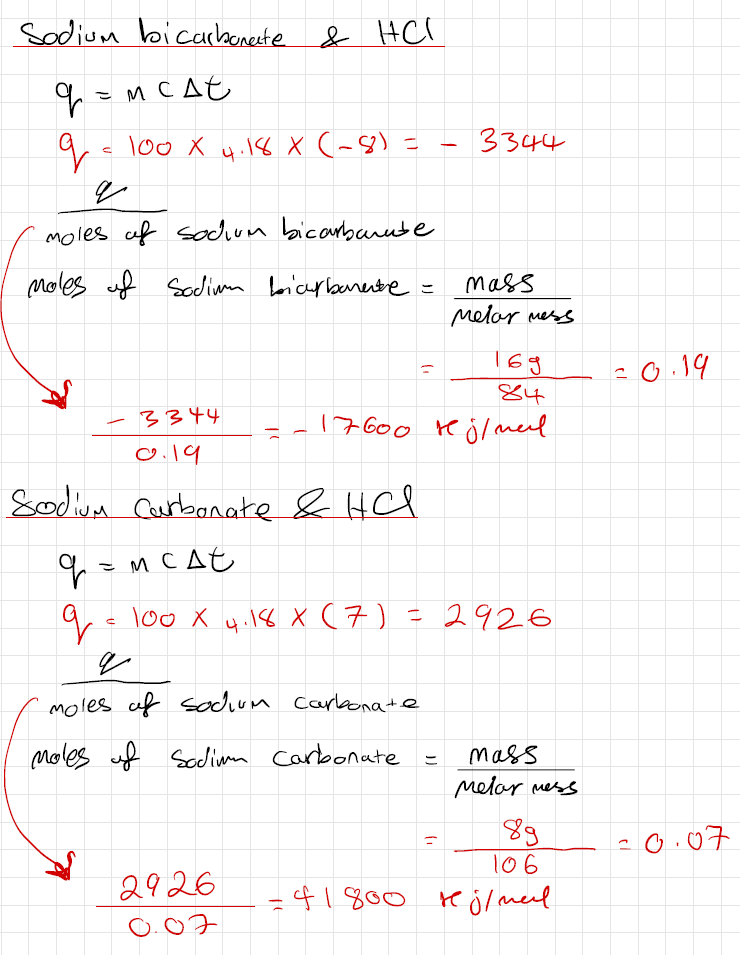 Sodium bicarbonate & HCl
q = m c Δt
q = 100 × 4.18 × (-8) = - 3344
q
moles of sodium bicarbonate
moles of Sodium bicarbonate = mass
Molar mass
= 16g = 0.19
84
- 3344 = - 17600 KJ/mol
0.19
Sodium Carbonate & HCl
q = m c Δt
q = 100 × 4.18 × (7) = 2926
q
moles of sodium carbonate
moles of Sodium Carbonate = mass
Molar mass
= 8g = 0.07
106
2926 = 41800 KJ/mol
0.07